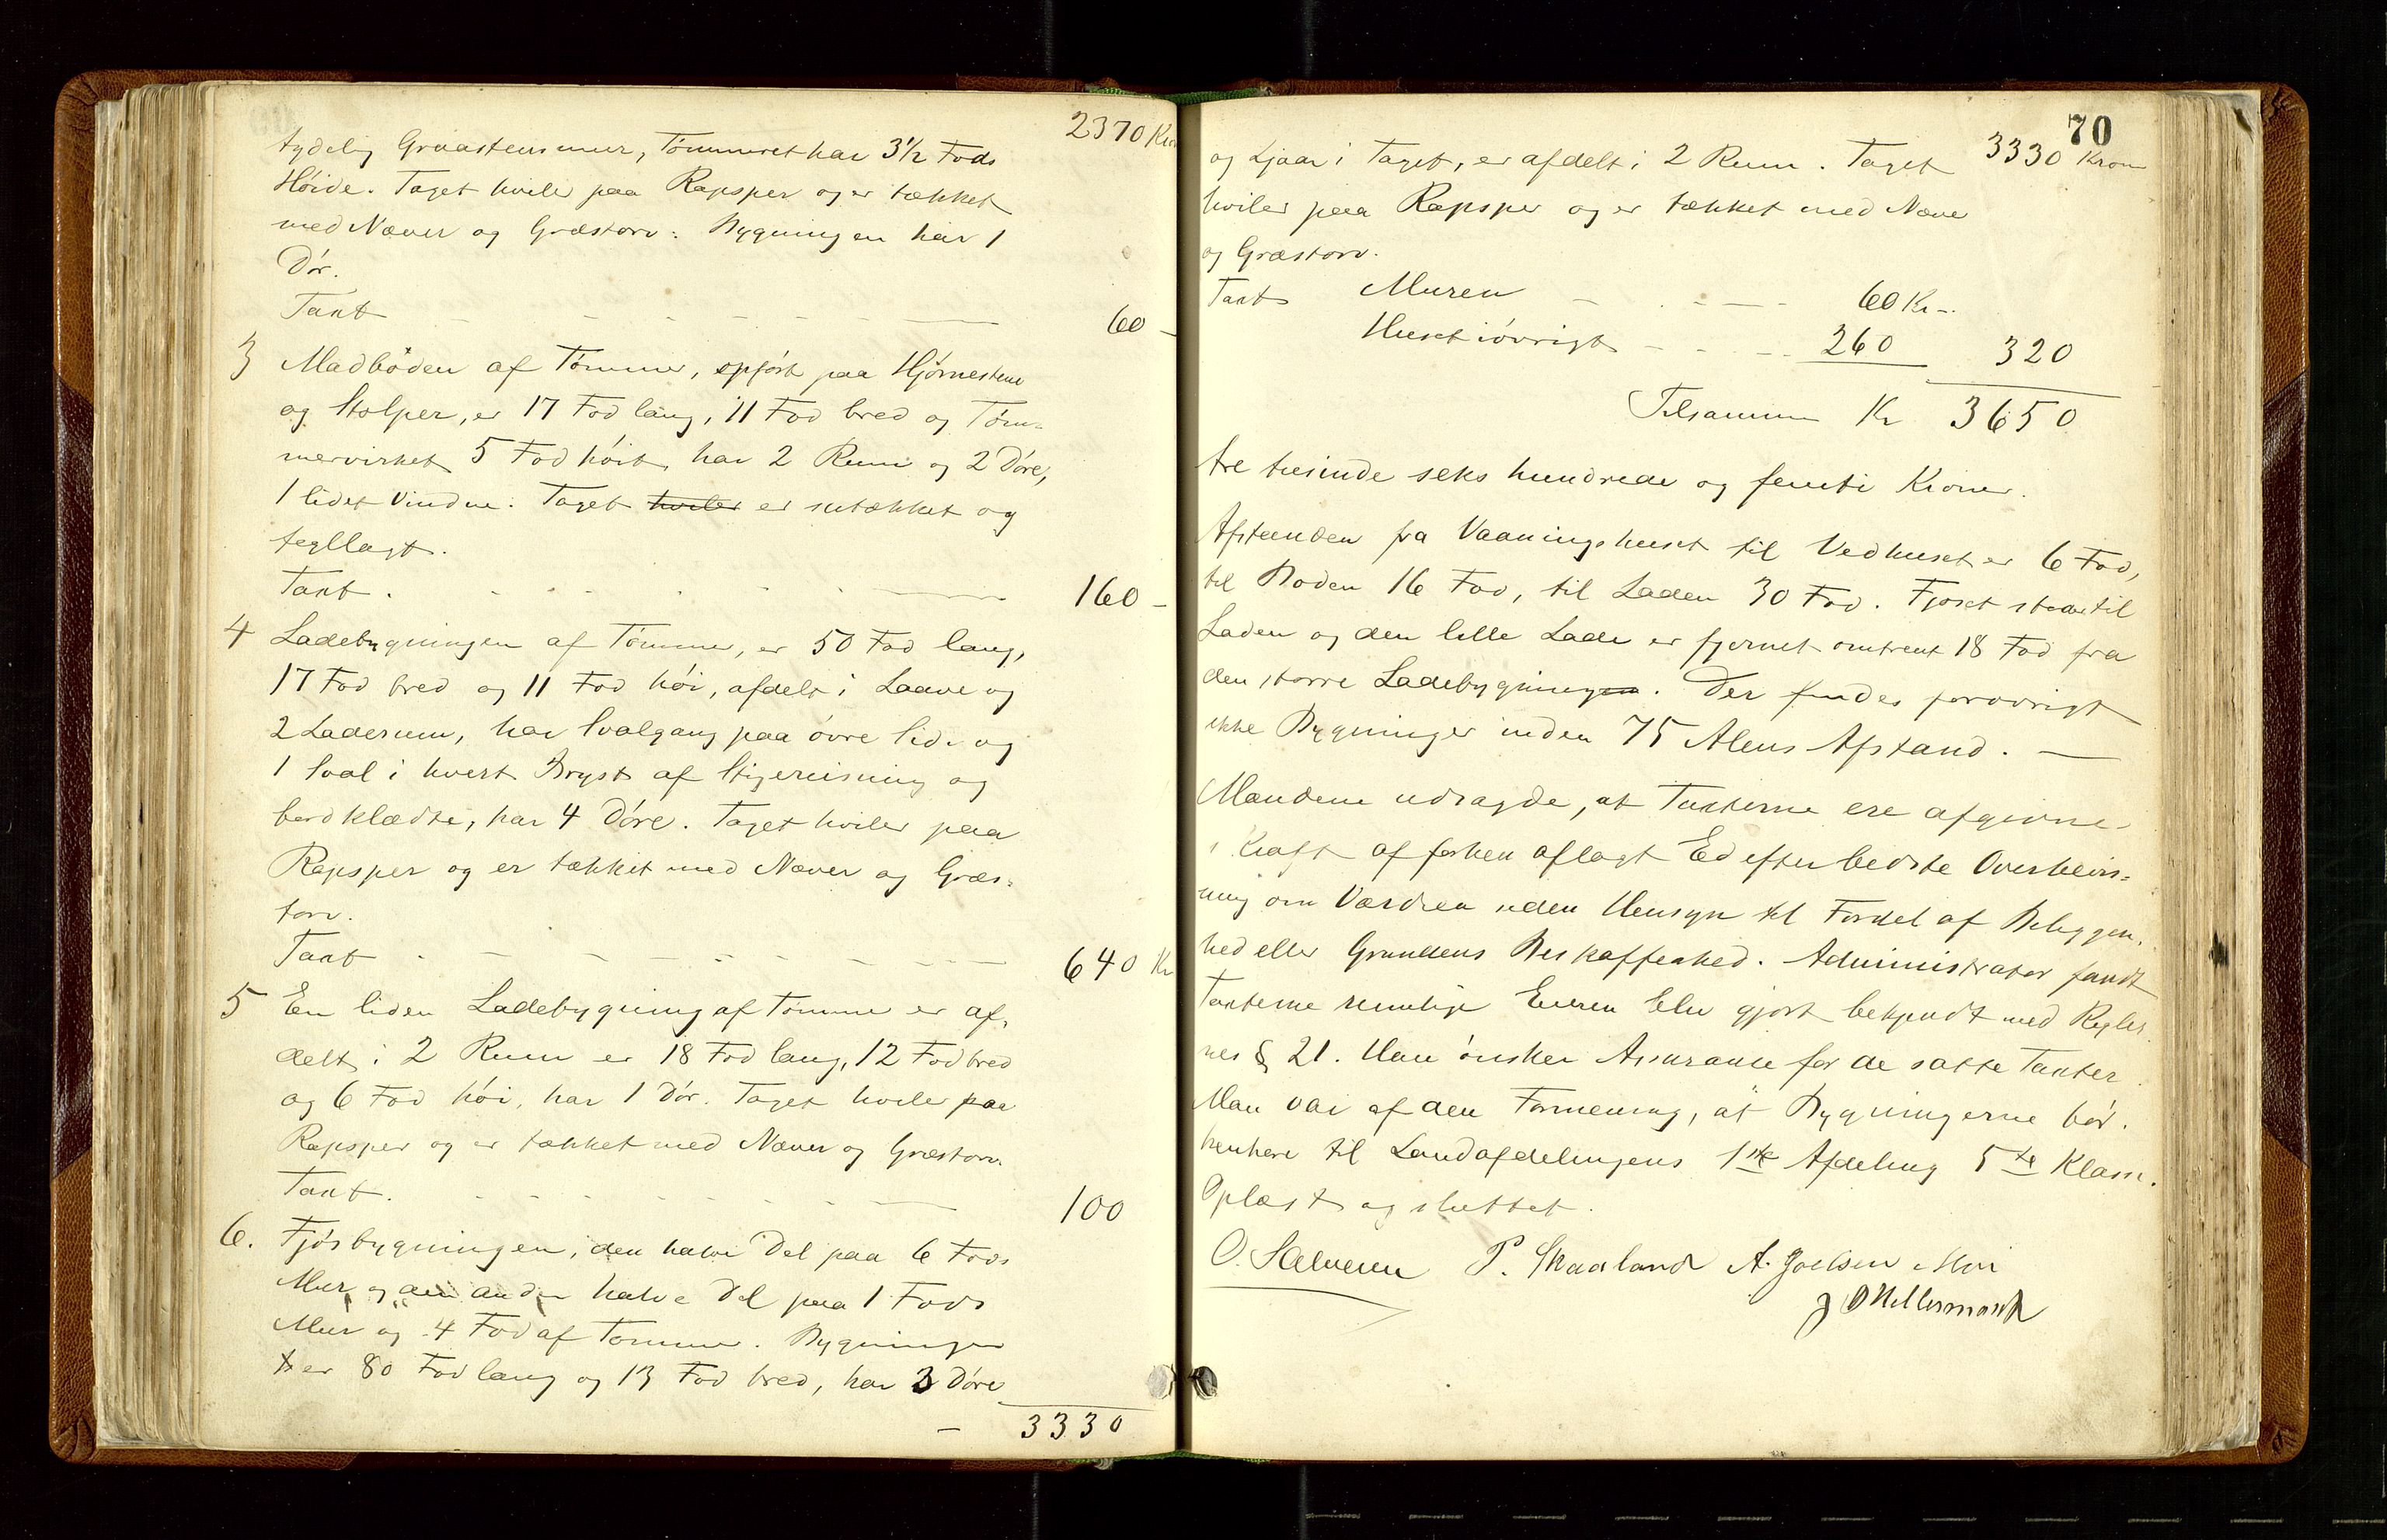 2370 Kro
tydelig Graastensmur, Tømmeret har 3 1/2 Fods
Høide. Taget hviler paa Rapsper og er tækket
med Næver og Græstorv. Bygningen har 1
Dør.
Taxt - - - - - - 60 -
3 Madboden af Tømmer, opført paa Hjørnestene
og Stolper, er 17 Fod lang, 11 Fod bred og Tøm-
mervirket 5 Fod høit, har 2 Rum og 2 Døre,
1 lidet Vindue. Taget hviler er sutækket og
tegllagt.
Taxt . - - - - - 160 -
4 Ladebygningen af Tømmer, er 50 Fod lang,
17 Fod bred og 11 Fod høi, afdelt i Laave og
2 Laderum, har Svalgang paa øvre Side og
1 Sval i hvert Bryst af Stigereisning og
bordklædte, har 4 Døre. Taget hviler paa
Rapsper og er tækket med Næver og Græs-
torv.
Taxt - - - - - - 640 Kr
5 En liden Ladebygning af Tømmer er af-
delt i 2 Rum er 18 Fod lang, 12 Fod bred
og 6 Fod høi, har 1 Dør. Taget hviler paa
Rapsper og er tækket med Næver og Græstorv.
Taxt. - - - - - - 100
6. Fjøsbygningen, den halve Del paa 6 Fods
Mur og den anden halve Del paa 1 Fods
Mur og 4 Fod af Tømmer. Bygningen
er 80 Fod lang og 13 Fod bred, har 3 Døre
- 3330
70
og Ljaar i Taget, er afdelt i 2 Rum. Taget 3330 Kroner
hviler paa Rapsper og er tækket med Næver
og Græstorv.
Taxt Muren - - - - 60 Kr -
Huset iøvrigt - - - 260 320
Tilsammen Kr 3650
tre tusinde seks hundrede og femti Kroner.
Afstanden fra Vaaningshuset til Vedhuset er 6 Fod,
til Boden 16 Fod, til Laden 30 Fod. Fjøset støder til
Laden og den lille Lade er fjernet omtrent 18 Fod fra
den større Ladebygningen. Der findes forøvrigt
ikke Bygninger inden 75 Alens Afstand. -
Mændene udsagde, at Taxterne ere afgivne
i Kraft af forhen aflagt Ed efter bedste Overbevis-
ning om Værdien uden Hensyn til Fordel af Beliggen-
hed eller Grundens Beskaffenhed. Administrator fandt
Taxterne rimelige Eieren blev gjort bekjendt med Regler-
nes § 21. Han ønsker Assurance for de satte Taxter.
Man var af den Formening, at Bygningerne bør
henhøre til Landafdelingens 1ste Afdeling 5te Klasse.
Oplæst og sluttet.
P. Skaaland A. Joelsen Moi